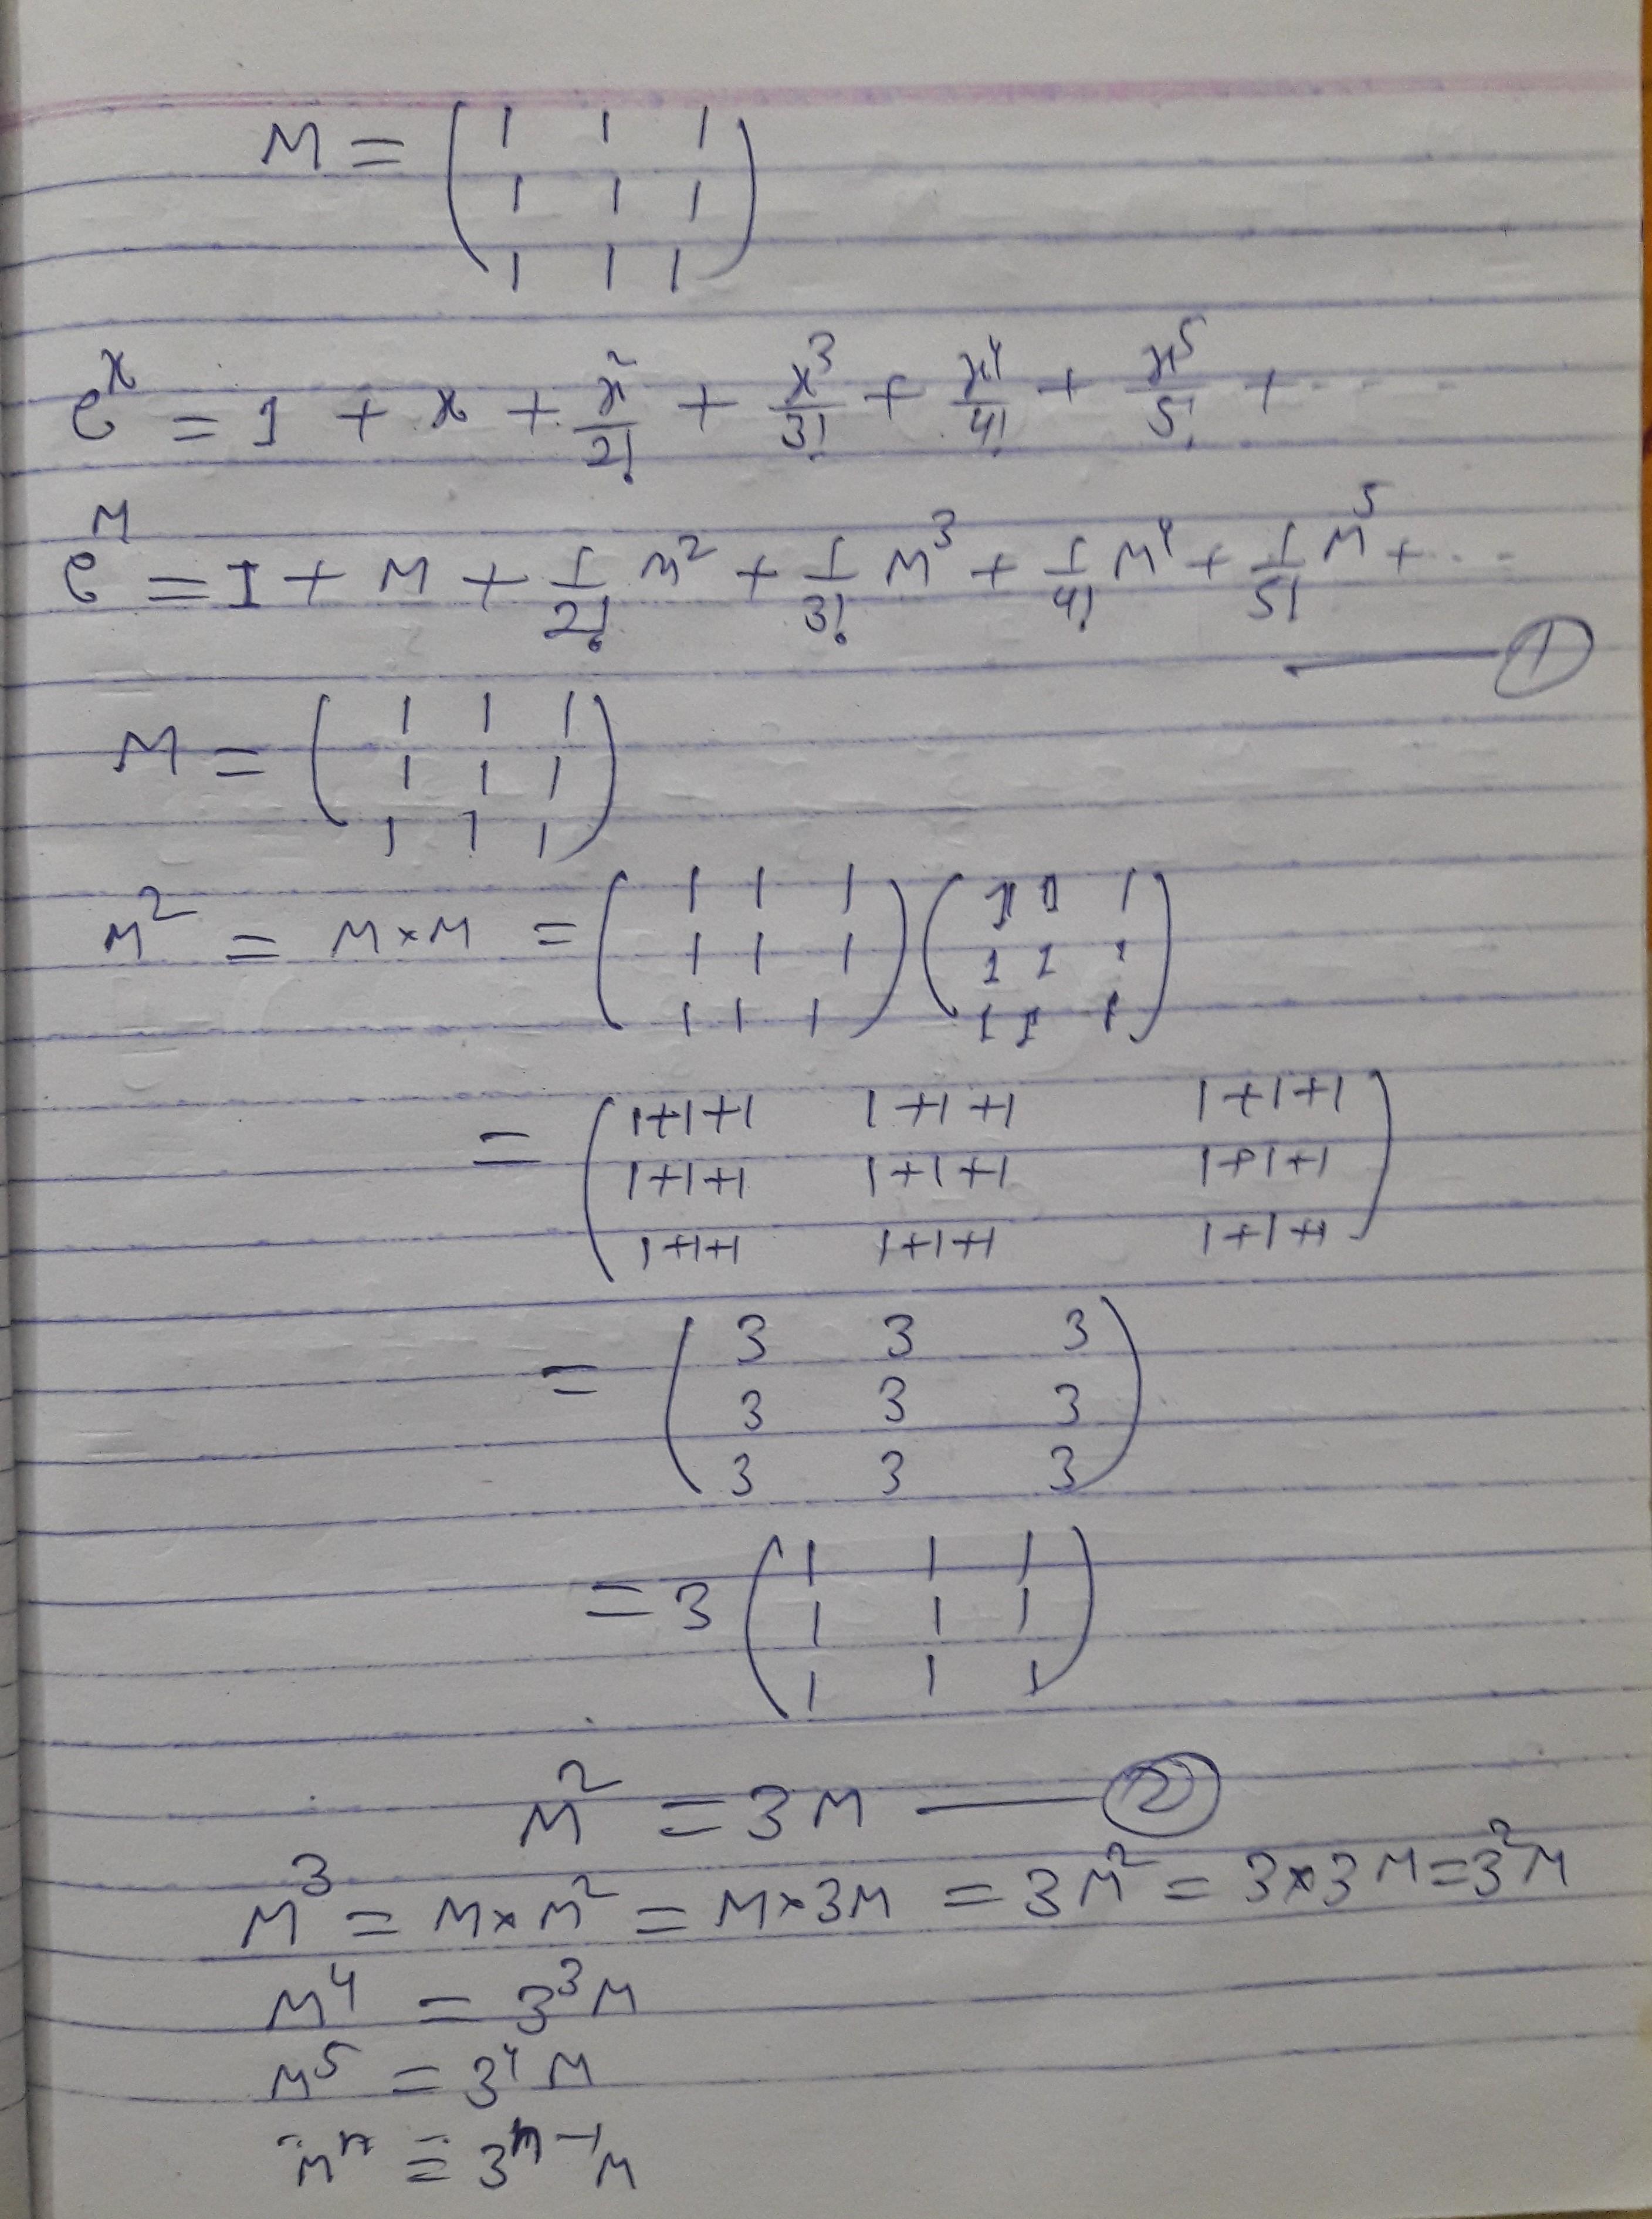 M = ( 1 1 1
1 1 1
1 1 1 )
e^x = 1 + x + x^2/2! + x^3/3! + x^4/4! + x^5/5! + ....
e^M = I + M + 1/2! M^2 + 1/3! M^3 + 1/4! M^4 + 1/5! M^5 + ...
— ①
M = ( 1 1 1
1 1 1
1 1 1 )
M^2 = M×M = ( 1 1 1 ) ( 1 1 1 )
( 1 1 1 ) ( 1 1 1 )
( 1 1 1 ) ( 1 1 1 )
= ( 1+1+1 1+1+1 1+1+1
1+1+1 1+1+1 1+1+1
1+1+1 1+1+1 1+1+1 )
= ( 3 3 3
3 3 3
3 3 3 )
= 3 ( 1 1 1
1 1 1
1 1 1 )
M^2 = 3M — ②
M^3 = M×M^2 = M×3M = 3M^2 = 3×3M = 3^2M
M^4 = 3^3M
M^5 = 3^4 M
M^n = 3^(n-1) M